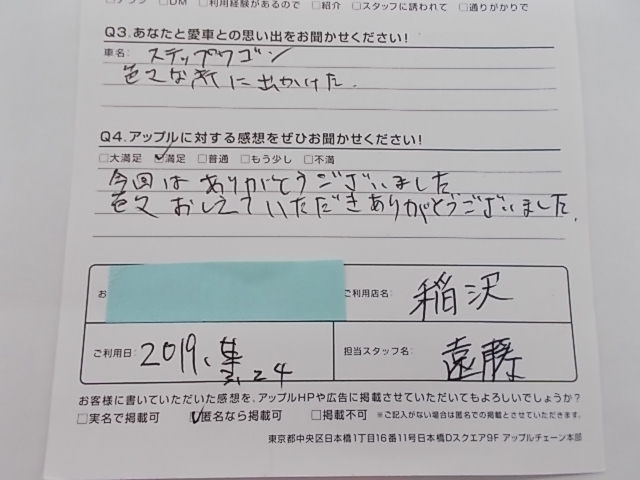 □DM □利用経験があるので □紹介 □スタッフに誘われて □通りがかりで
Q3.あなたと愛車との思い出をお聞かせください!
車名: ステップワゴン
色々な所に出かけた.
Q4.アップルに対する感想をぜひお聞かせください!
□大満足 ☑満足 □普通 □もう少し □不満
今回はありがとうございました
色々おしえていただきありがとうございました.
お
ご利用店名: 稲沢
ご利用日: 2019.
3.24
担当スタッフ名: 遠藤
お客様に書いていただいた感想を、アップルHPや広告に掲載させていただいてもよろしいでしょうか?
□実名で掲載可 ☑匿名なら掲載可 □掲載不可 ※ご記入がない場合は匿名での掲載とさせていただきます.
東京都中央区日本橋1丁目16番11号日本橋Dスクエア9F アップルチェーン本部